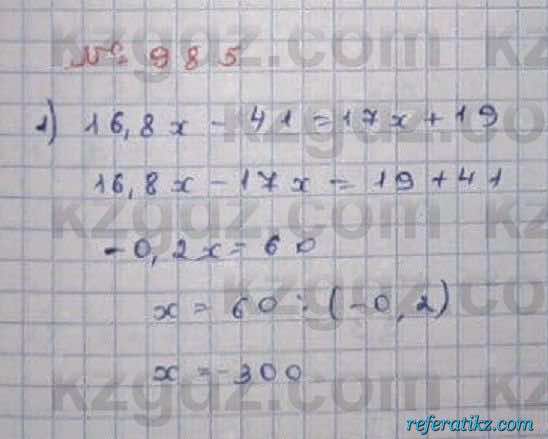 № 985
1) 16,8x - 41 = 17x + 19
16,8x - 17x = 19 + 41
-0,2x = 60
x = 60 : (-0,2)
x = -300
referatikz.com